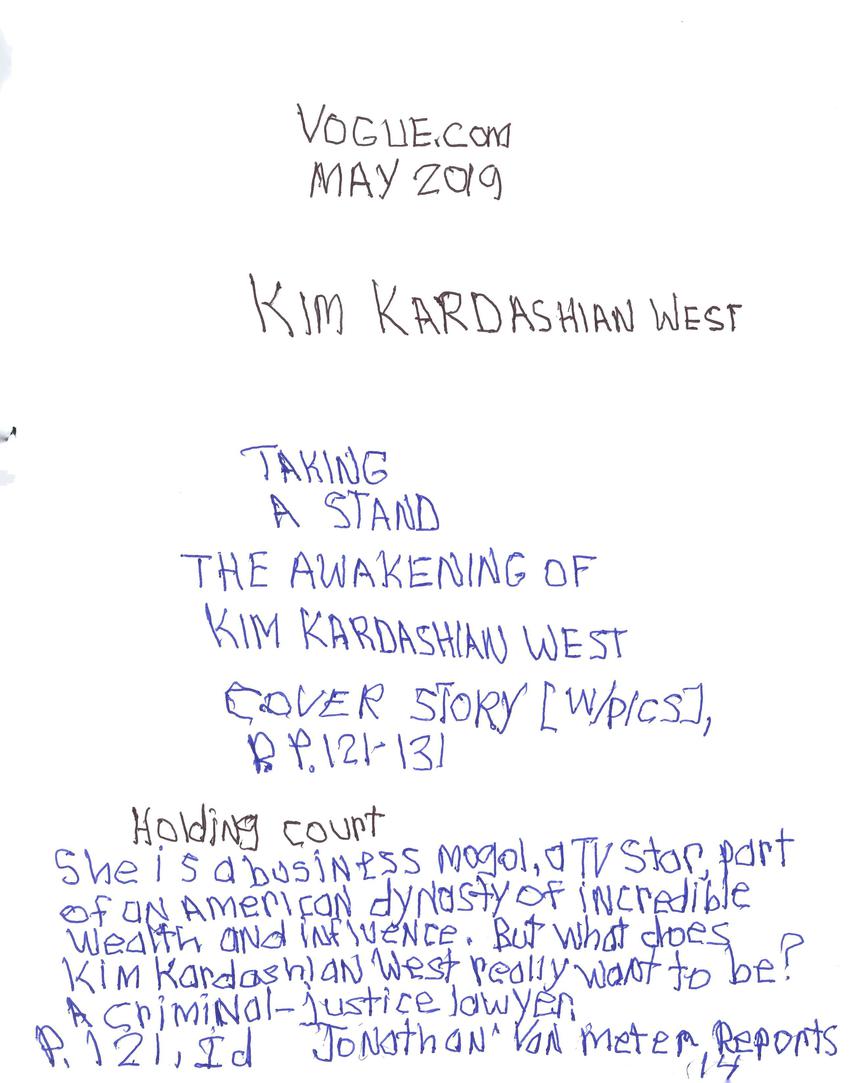 VOGUE.com
MAY 2019
KIM KARDASHIAN WEST
TAKING
A STAND
THE AWAKENING OF
KIM KARDASHIAN WEST
COVER STORY [W/PICS],
P.121-131
Holding court
She is a business mogol, a TV Star, part
of an American dynasty of incredible
wealth and influence. But what does
Kim Kardashian West really want to be?
A criminal-justice lawyer.
P. 121, Id Jonathan Van Meter, Reports
14